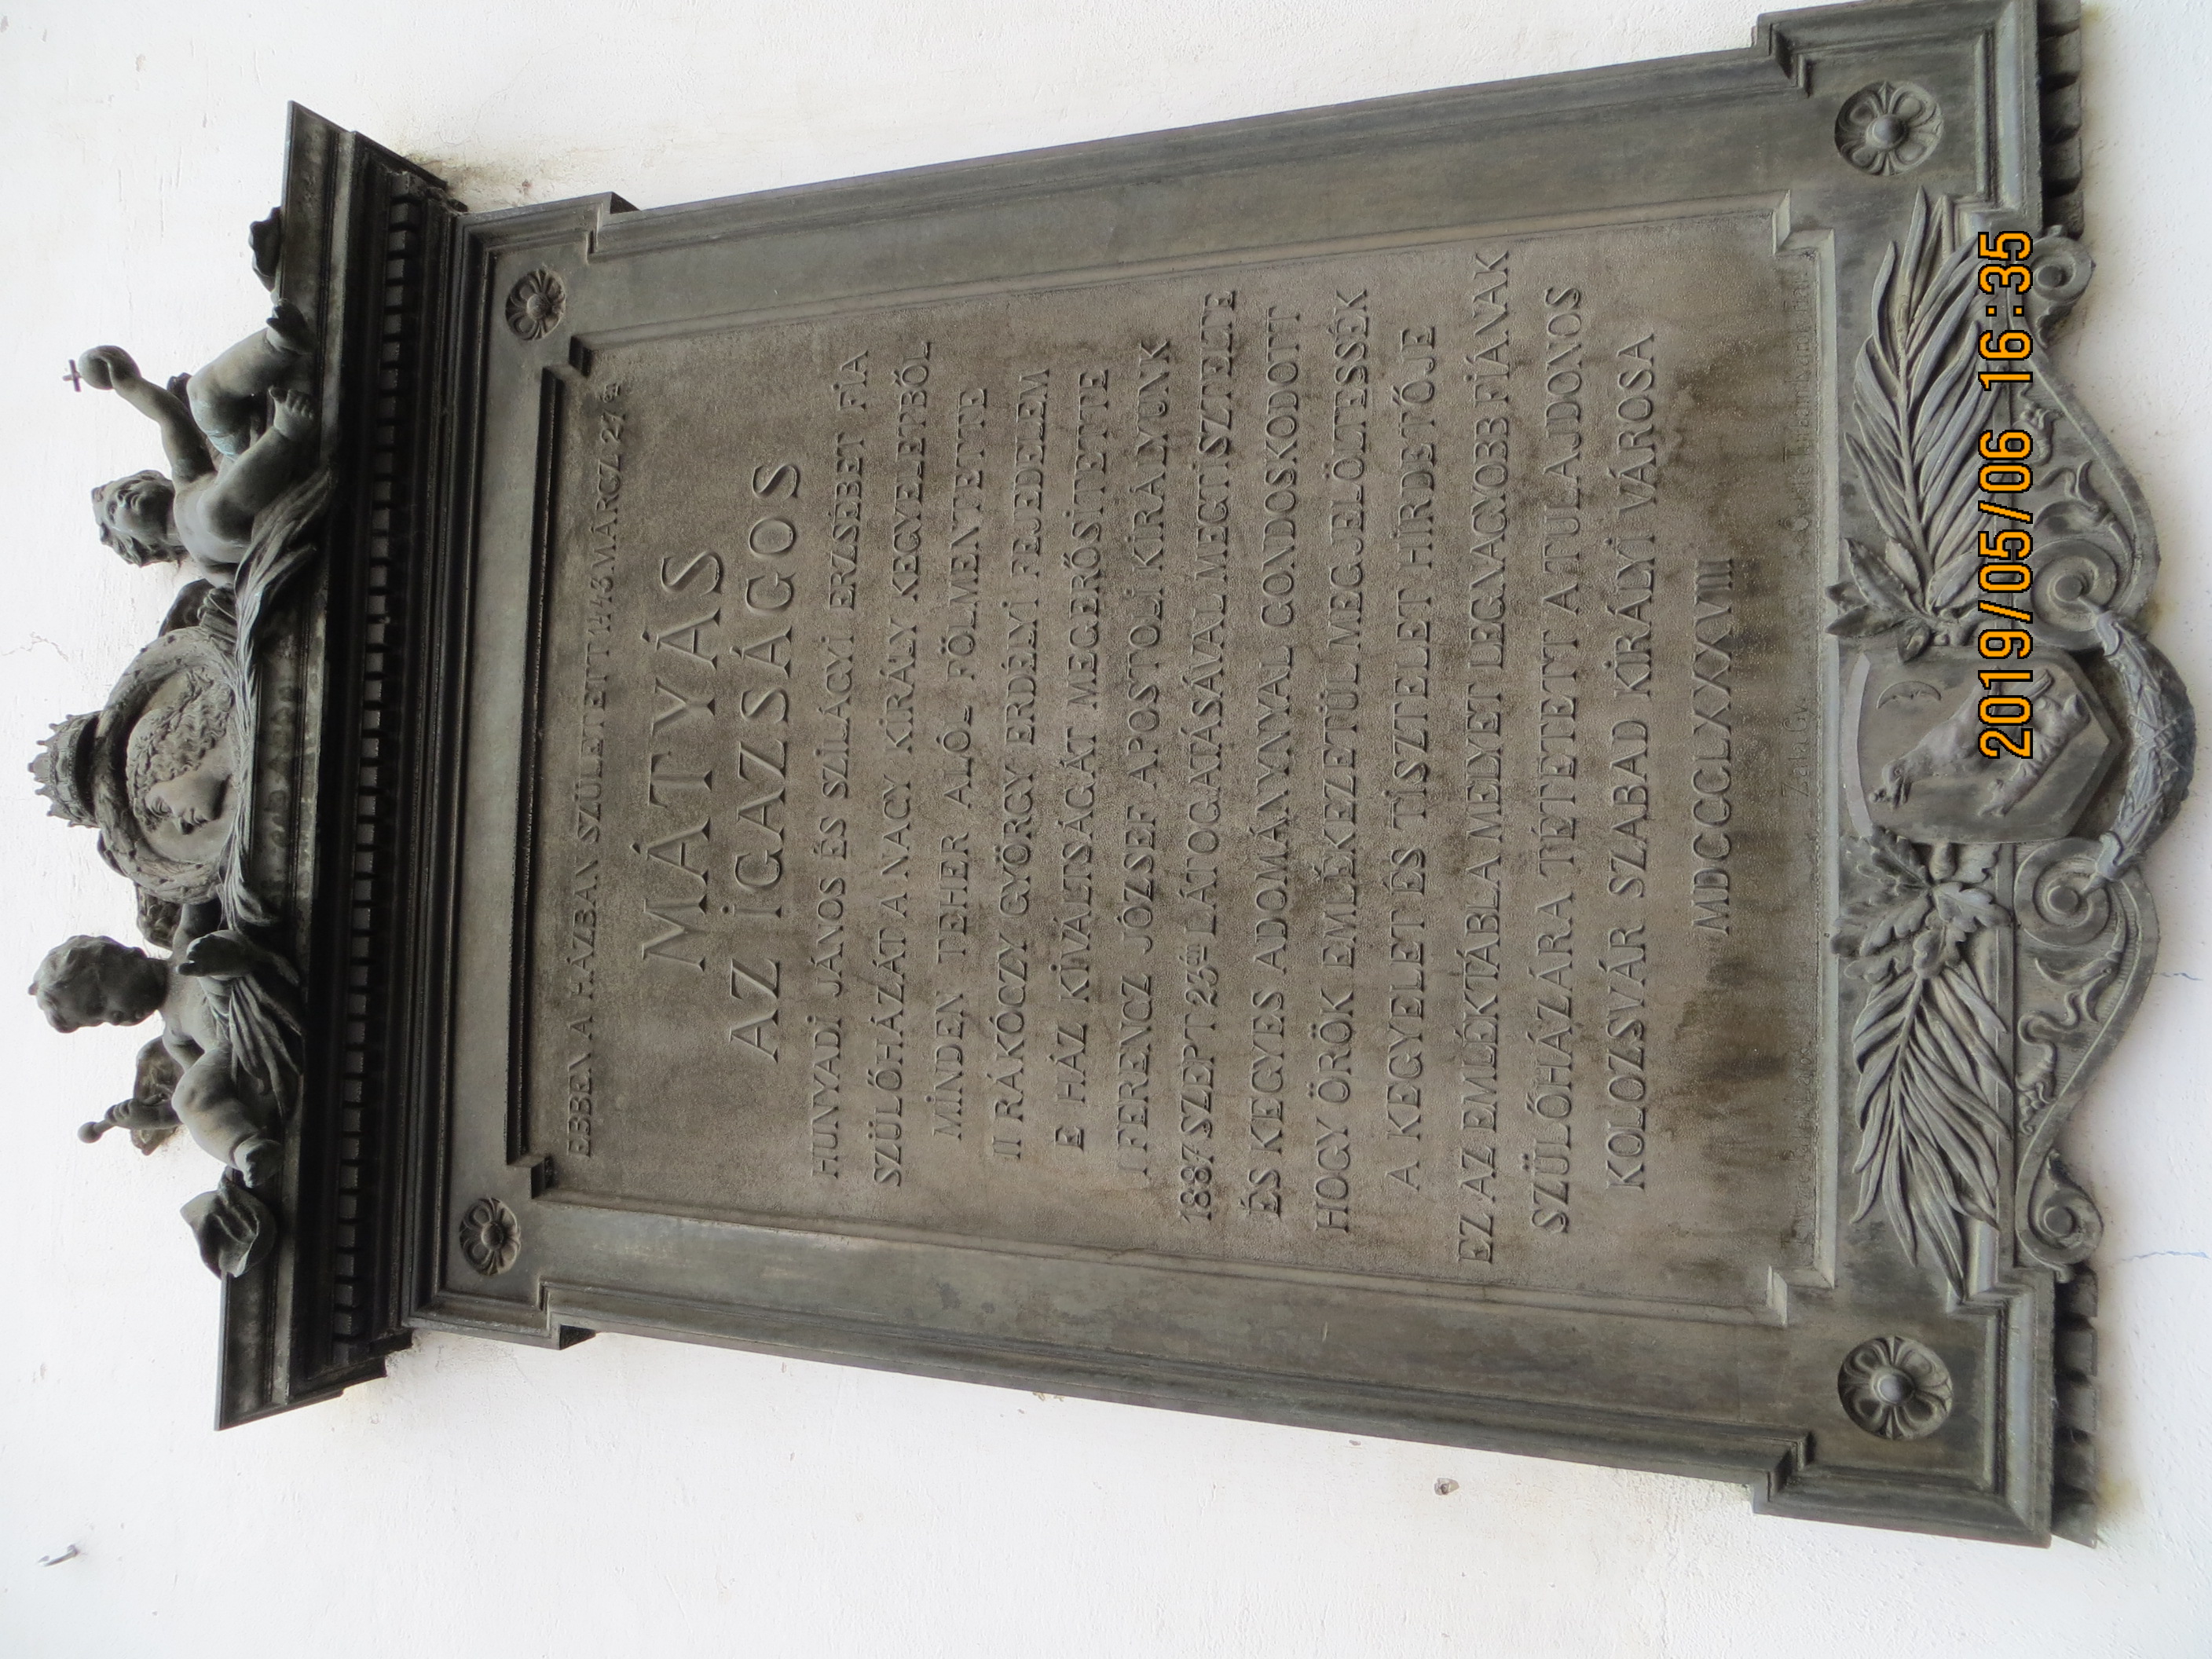 EBBEN A HÁZBAN SZÜLETETT 1443 MÁRCZ. 27én
MÁTYÁS
AZ İGAZSÁGOS
HUNYADİ JÁNOS ÉS SZİLÁGYİ ERZSEBET FİA
SZÜLŐHÁZÁT A NAGY KİRÁLY KEGYELETBŐL
MİNDEN TEHER ALÓL FÖLMENTETTE
II RÁKÓCZY GYÖRGY ERDÉLYİ FEJEDELEM
E HÁZ KİVÁLTSÁGÁT MEGERŐSİTETTE
I FERENCZ JÓZSEF APOSTOLİ KİRÁLYUNK
1887 SZEPT 23án LÁTOGATÁSÁVAL MEGTİSZTELTE
ÉS KEGYES ADOMÁNYNYAL GONDOSKODOTT
HOGY ÖRÖK EMLÉKEZETÜL MEGJELÖLTESSÉK
A KEGYELET ÉS TİSZTELET HİRDETŐJE
EZ AZ EMLÉKTÁBLA MELYET LEGNAGYOBB FİÁNAK
SZÜLŐHÁZÁRA TÉTETETT A TULAJDONOS
KOLOZSVÁR SZABAD KİRÁLYİ VÁROSA
MDCCCLXXXVIII
Zala Gy.
2019/05/06 16:35